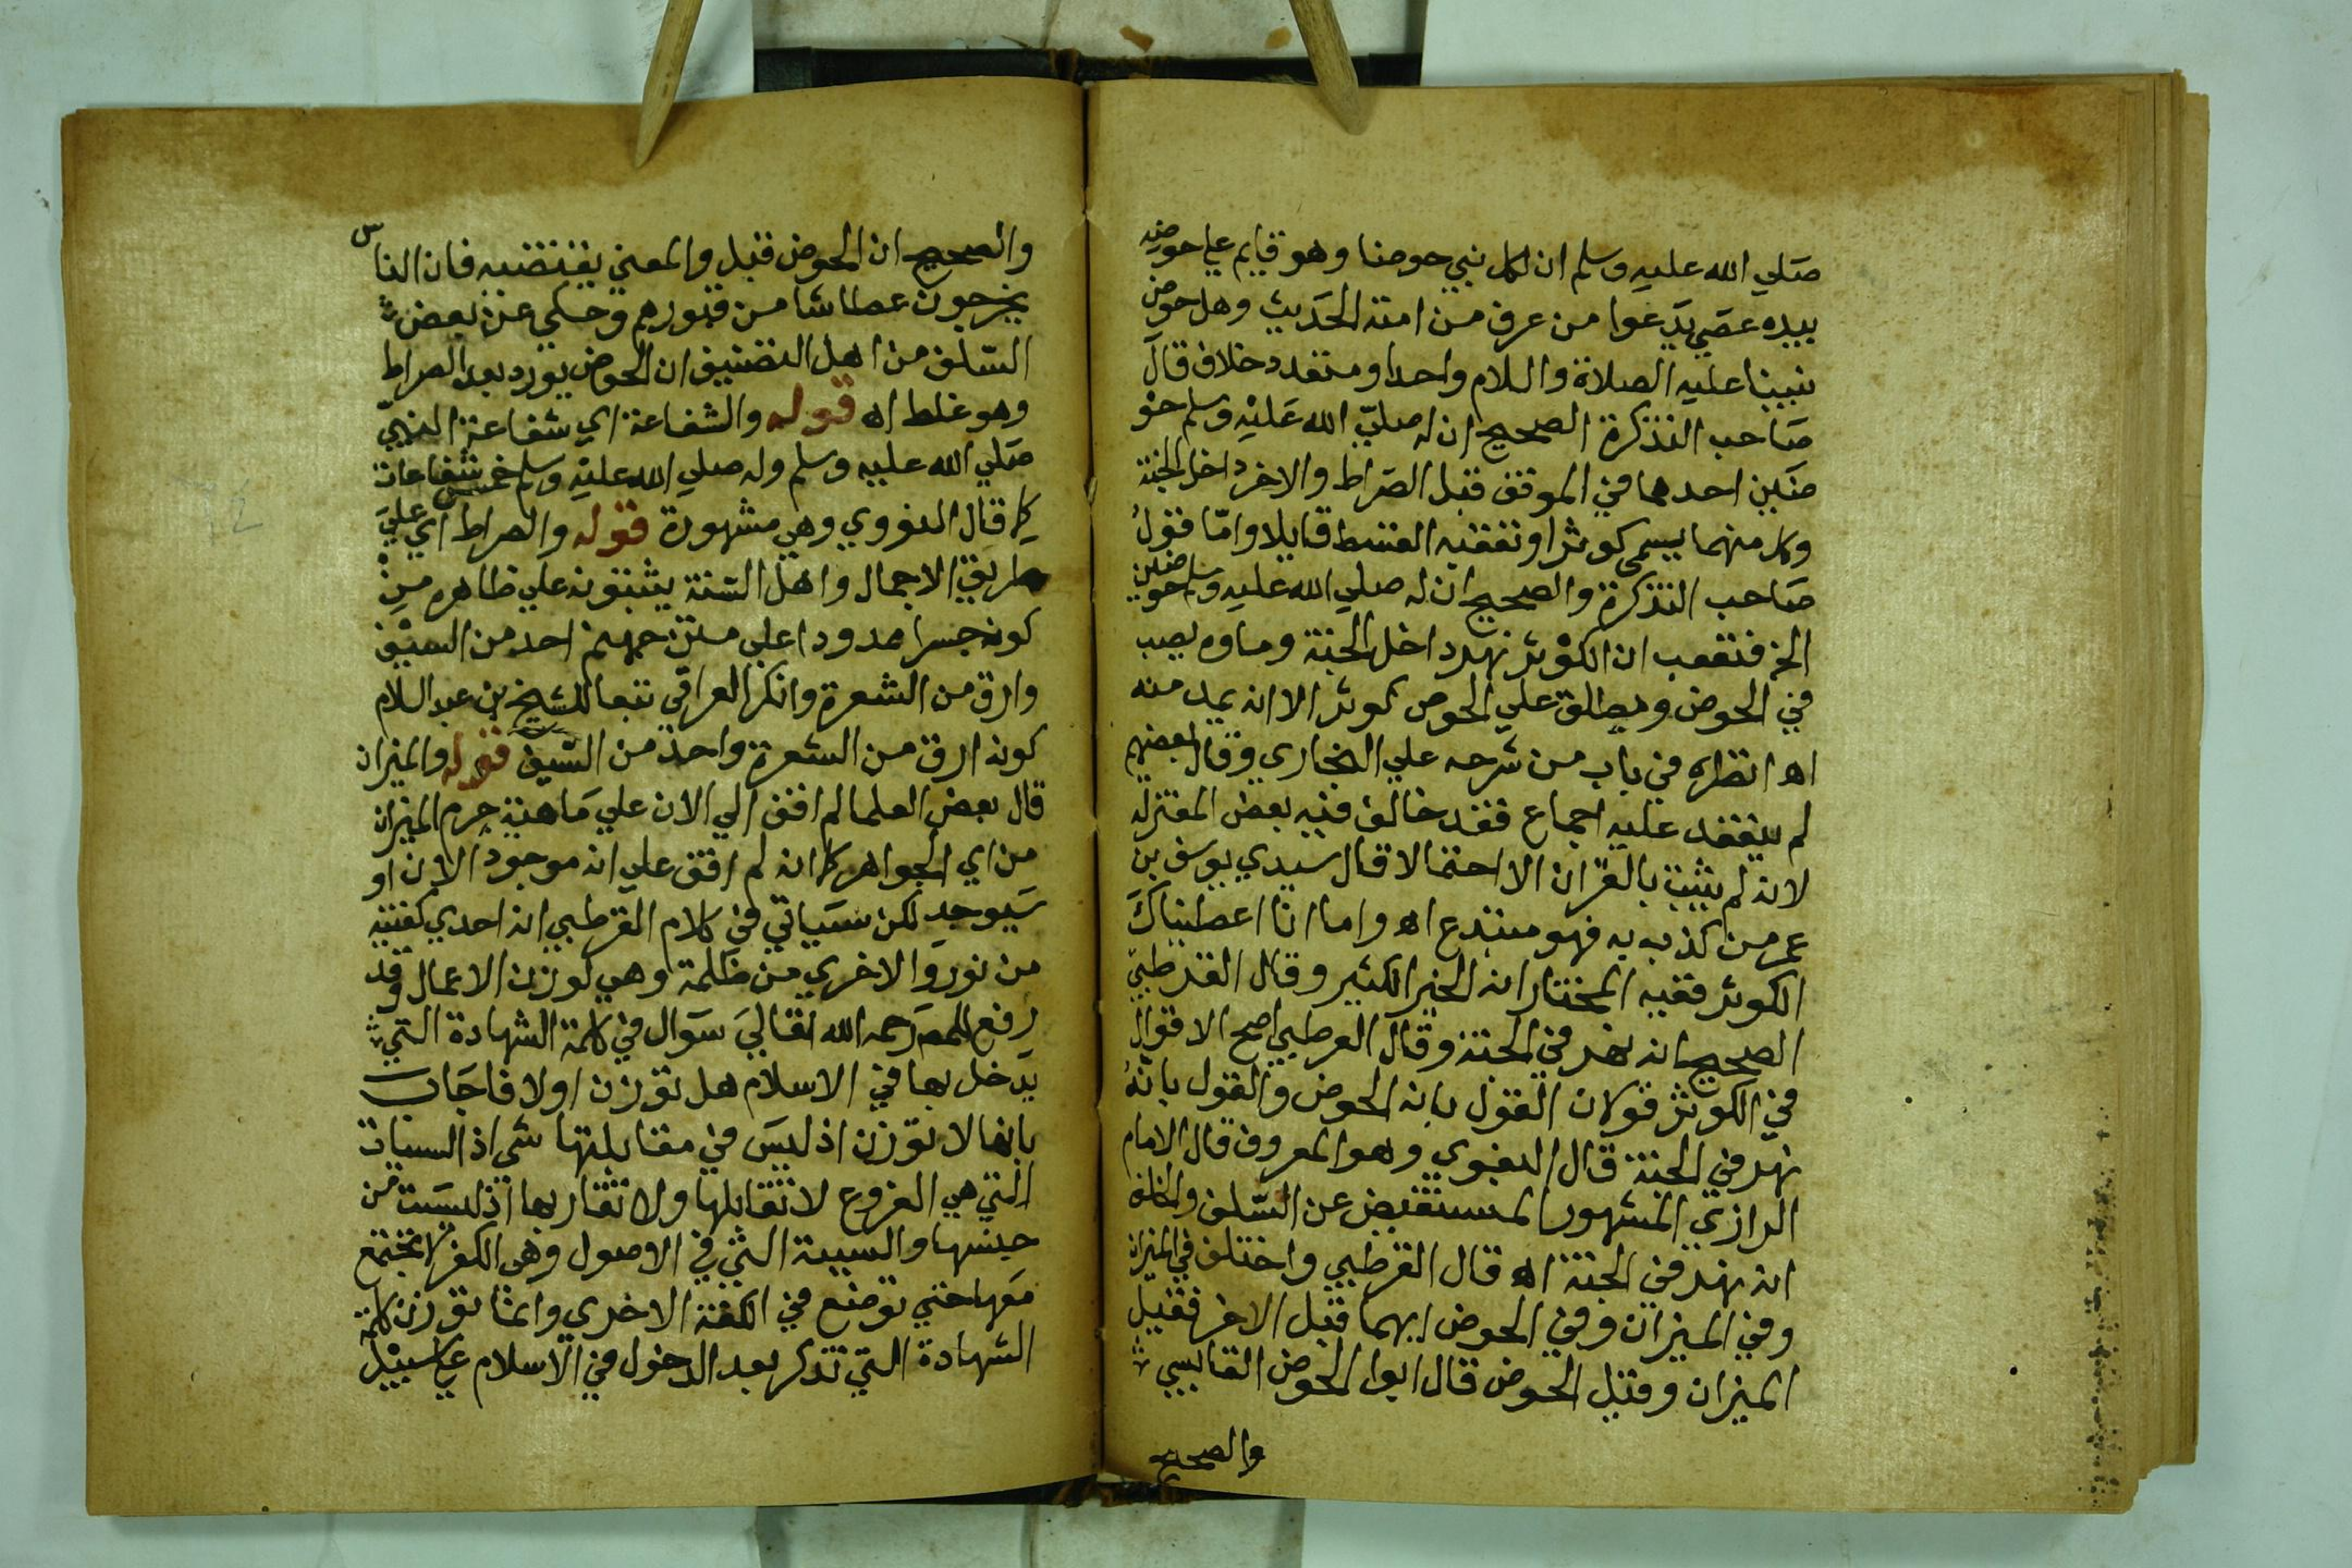 صلي الله عليه وسلم ان لكل نبي حوضا وهو قايم علي حوضه
بيده عصي يدعوا من عرف من امته الحديث وهل حوض
نبينا عليه الصلاة والسلام واحد او متعدد خلاف قال
صاحب التذكرة الصحيح ان له صلي الله عليه وسلم حو
ضين احدهما في الموقف قبل الصراط والاخر داخل الجنة
وكل منهما يسمي كوثرا وتعقبه القسط قايلا واما قول
صاحب التذكرة والصحيح ان له صلي الله عليه وسلم حوضين
الخ فتعقب ان الكوثر نهر داخل الجنة وماوه يصب
في الحوض ويطلق علي الحوض كوثر الا انه يمد منه
اه انظره في باب من شرحه علي البخاري وقال بعضهم
لم ينعقد عليه اجماع فقد خالف فيه بعض المعتزلة
لانه لم يثبت بالقران الا احتمالا قال سيدي يوسف بن
عمر من كذب به فهو مبتدع اه واما انا اعطيناك
الكوثر ففيه المختار انه الخير الكثير وقال القرطبي
الصحيح انه نهر في الجنة وقال القرطبي اصح الاقوال
في الكوثر قولان القول بانه الحوض والقول بانه
نهر في الجنة قال البغوي وهو المعروف قال الامام
الرازي المشهور المستفيض عن السلف والخلف
انه نهر في الجنة اه قال القرطبي واختلف في الميزان
وفي الميزان وفي الحوض ايهما قبل الاخر فقيل
الميزان وقيل الحوض قال ابوا الحوض القابسي
والصحيح
والصحيح ان الحوض قبل والمعني يقتضيه فان الناس
يخرجون عطاشا من قبورهم وحكي عن بعض
السلف من اهل التصنيف ان الحوض يورد بعد الصراط
وهو غلط اه قوله والشفاعة اي شفاعة النبي
صلي الله عليه وسلم وله صلي الله عليه وسلم خمس شفاعات
كما قال النووي وهي مشهورة قوله والصراط اي علي
طريق الاجمال واهل السنة يثبتونه علي ظاهره من
كونه جسرا ممدودا علي متن جهنم احد من السيف
وارق من الشعرة وانكر العراقي تبعا للشيخ بن عبد السلام
كونه ارق من الشعرة واحد من السيف قوله والميزان
قال بعض العلما لم اقف الي الان علي ماهية جرم الميزان
من اي الجواهر كما انه لم اقف علي انه موجود الان او
سيوجد لكن سياتي في كلام القرطبي ان احدي كفتيه
من نور والاخري من ظلمة وهي لوزن الاعمال وقد
رفع للمص رحمه الله تعالي سوال في كلمة الشهادة التي
يدخل بها في الاسلام هل توزن اولا فاجاب
بانها لا توزن اذ ليس في مقابلتها شي اذ السيات
التي هي الفروع لا تقابلها ولا تقاربها اذ ليست من
جنسها والسيية التي في الاصول وهي الكفر لا تجتمع
معها حتي توضع في الكفة الاخري وانما توزن كلمة
الشهادة التي تذكر بعد الدخول في الاسلام علي سبيل